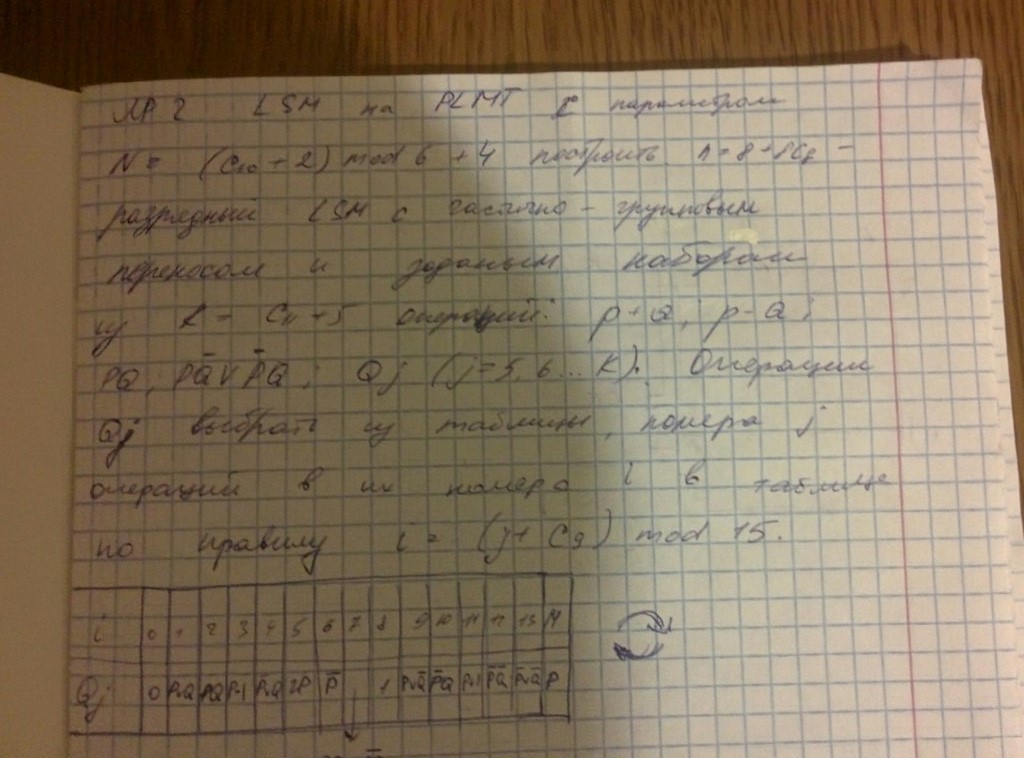 ЛР 2 LSM на PLMT с параметром
N = (C₁₀ + 2) mod 6 + 4 построить n = 8 +
разрядный LSM с частично - групповым
переносом и заданым набором
из K = C₁₁ + 5 операций: P + Q; P - Q;
PQ; PQ̄ V P̄Q; Qj (j = 5, 6 ... K). Операции
Qj выбрать из таблицы, номера j
операций в их номера i в таблице
по правилу i = (j + C₉) mod 15.
i 0 1 2 3 4 5 6 7 8 9 10 11 12 13 14
Qj 0 PQ 2P P̄ 1 P